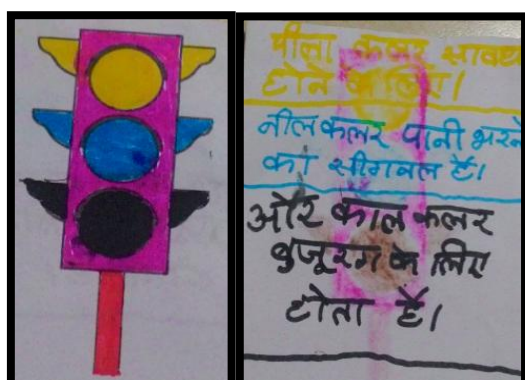 पीला कलर सावध
होने के लिए।
नील कलर पानी भरने
का सीगनल है।
और काल कलर
बुजूरग के लिए
होता है।